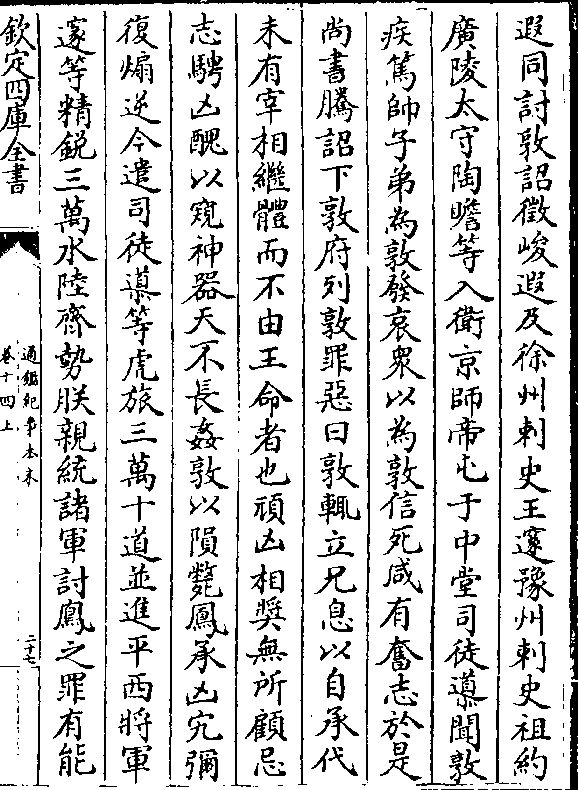 遐同討敦詔徵峻遐及徐州刺史王邃豫州刺史祖約
廣陵太守陶瞻等入衛京師帝屯于中堂司徒導聞敦
疾篤帥子弟為敦發哀衆以為敦信死咸有奮志於是
尚書騰詔下敦府列敦罪惡曰敦輒立兄息以自承代
未有宰相繼體而不由王命者也頑凶相奨無所顧忌
志騁凶醜以窺神器天不長姦敦以隕斃鳳承凶宄彌
復煽逆今遣司徒導等虎旅三萬十道並進平西將軍
邃等精鋭三萬水陸齊勢朕親統諸軍討鳳之罪有能
欽定四庫全書
通鑑紀事本末
卷十四上
二十七